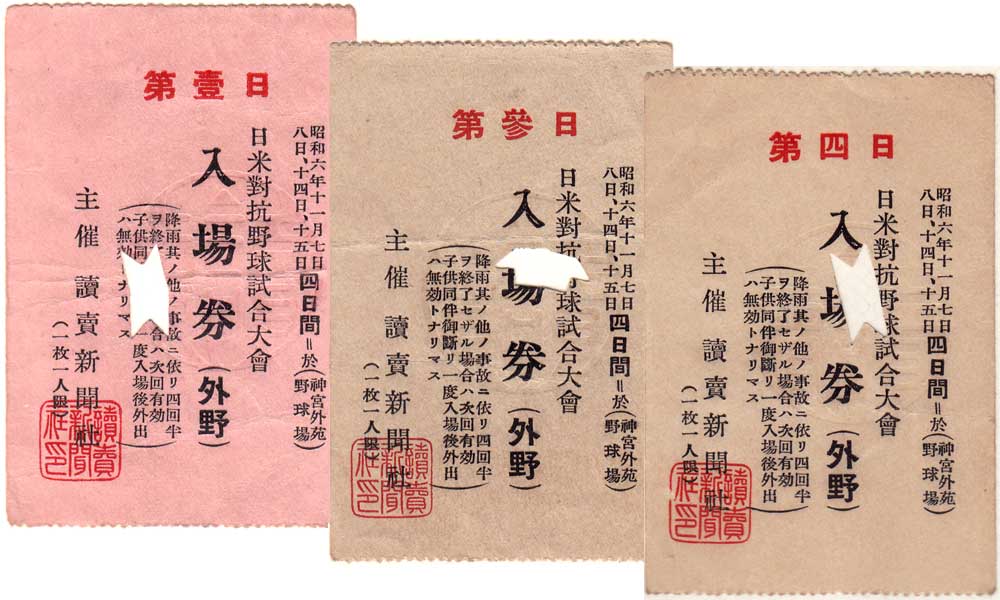 第壹日
昭和六年十一月七日
八日、十四日、十五日四日間=於(神宮外苑
野球場)
日米對抗野球試合大會
入場券(外野)
(降雨其ノ他ノ事故ニ依リ四回半
ヲ終 合ハ次回有効
子供同 度入場後外出
ハ無効 ナリマス)
主催讀賣新聞社
(一枚一人限)
讀賣
新聞
社印
第參日
昭和六年十一月七日
八日、十四日、十五日四日間=於(神宮外苑
野球場)
日米對抗 球試合大會
入場券(外野)
(降雨其ノ他ノ事故ニ依リ四回半
ヲ終了セザル場合ハ次回有効
子供同伴御斷リ一度入場後外出
ハ無効トナリマス)
主催讀賣新聞社
(一枚一人限)
讀賣
新聞
社印
第四日
昭和六年十一月七日
八日、十四日、十五日四日間=於(神宮外苑
野球場)
日米對抗野球試合大會
入場券(外野)
(降雨其ノ他ノ事故ニ依リ四回半
ヲ終了セザル場合ハ次回有効
子供同伴御斷リ一度入場後外出
ハ無効トナリマス)
主催讀賣新聞社
(一枚一人限)
讀賣
新聞
社印